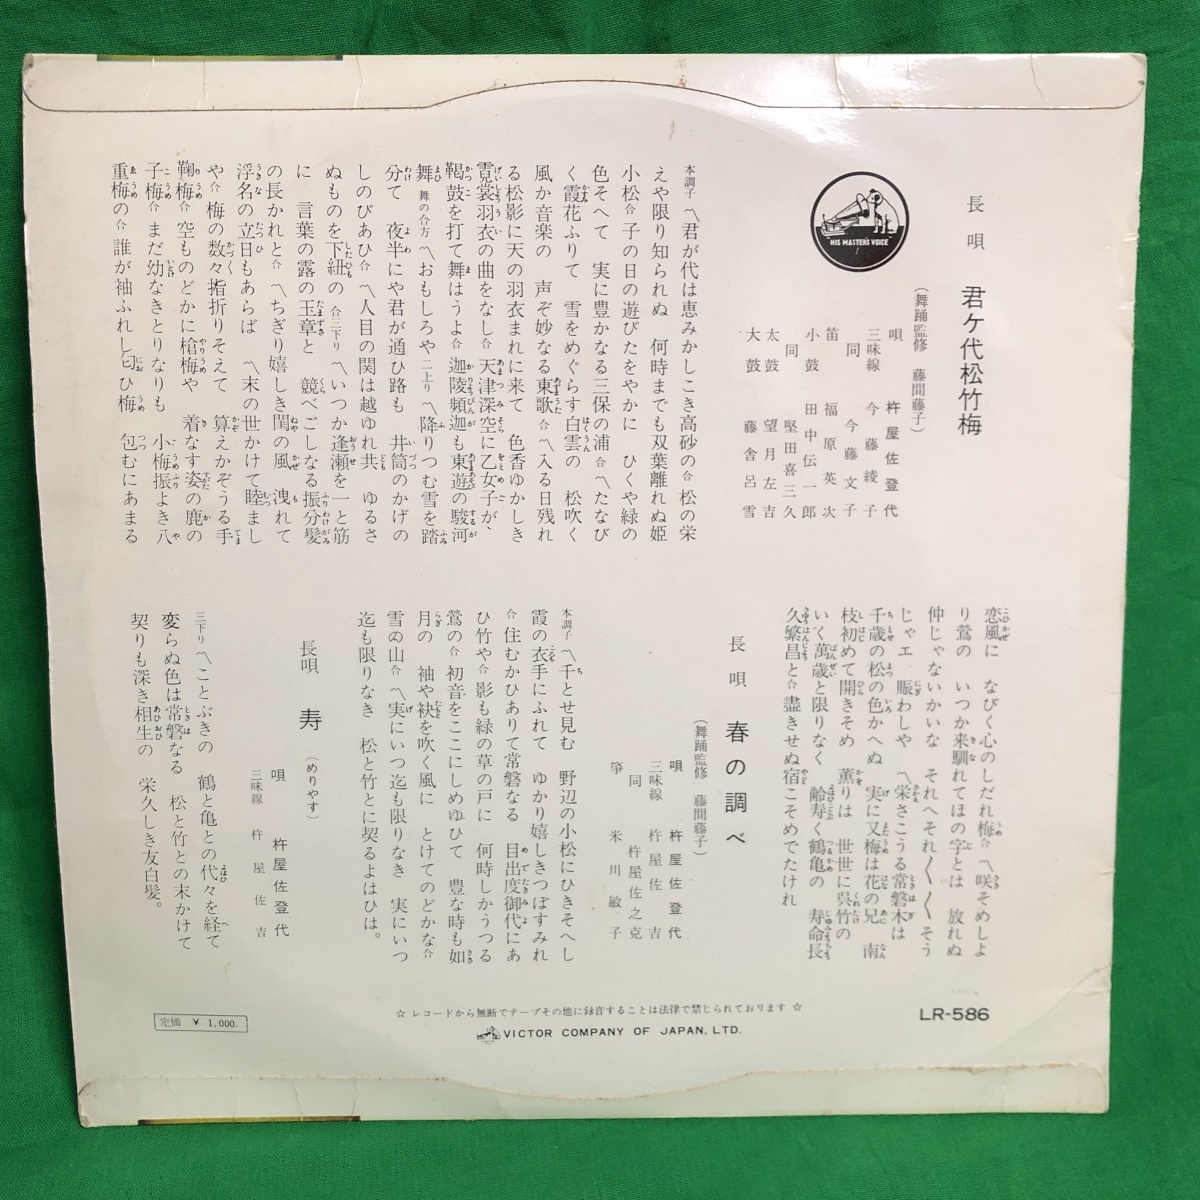 HIS MASTER'S VOICE
長唄　君ケ代松竹梅
（舞踊監修　藤間藤子）
唄　杵屋佐登代
三味線　今藤綾子
同　今藤文子
笛　福原英次
小鼓　田中伝一郎
同　堅田喜三久
太鼓　望月左吉
大鼓　藤舎呂雪
本調子 〽君が代は恵みかしこき高砂の合 松の栄
えや限り知られぬ　何時までも双葉離れぬ姫
小松合 子の日の遊びたをやかに　ひくや緑の
色そへて　実に豊かなる三保の浦 合〽たなび
く霞花ふりて　雪をめぐらす白雲の　松吹く
風か音楽の　声ぞ妙なる東歌 合〽入る日残れ
る松影に天の羽衣まれに来て　色香ゆかしき
霓裳羽衣の曲をなし合 天津深空に乙女子が、
鞨鼓を打て舞はうよ合 迦陵頻迦も東遊の駿河
舞 舞の合方 〽おもしろや 二上り 〽降りつむ雪を踏
分て　夜半にや君が通ひ路も　井筒のかげの
しのびあひ合〽人目の関は越ゆれ共　ゆるさ
ぬものを下紐の 合三下り 〽いつか逢瀬を一と筋
に　言葉の露の玉章と　競べごしなる振分髪
の長かれと合〽ちぎり嬉しき閨の風　洩れて
浮名の立日もあらば　〽末の世かけて睦まし
や合 梅の数々指折りそえて　算えかぞうる手
鞠梅合 空ものどかに槍梅や　着なす姿の鹿の
子梅合 まだ幼なきとりなりも　小梅振よき八
重梅の合 誰が袖ふれし匂ひ梅　包むにあまる
恋風に　なびく心のしだれ梅合〽咲そめしよ
り鶯の　いつか来馴れてほの字とは　放れぬ
仲じゃないかいな　それへそれ〱〱〱そう
じゃエ　賑わしや　〽栄さこうる常磐木は
千歳の松の色かへぬ　実に又梅は花の兄　南
枝初めて開きそめ　薫りは　世世に呉竹の
いく萬歳と限りなく　齢寿く鶴亀の　寿命長
久繁昌と合 盡きせぬ宿こそめでたけれ
長唄　春の調べ
（舞踊監修　藤間藤子）
唄　杵屋佐登代
三味線　杵屋佐吉
同　杵屋佐之克
箏　米川敏子
本調子 〽千とせ見む　野辺の小松にひきそへし
霞の衣手にふれて　ゆかり嬉しきつぼすみれ
合 住むかひありて常磐なる　目出度御代にあ
ひ竹や合 影も緑の草の戸に　何時しかうつる
鶯の合 初音をここにしめゆひて　豊な時も如
月の　袖や袂を吹く風に　とけてのどかな合
雪の山合〽実にいつ迄も限りなき　実にいつ
迄も限りなき　松と竹とに契るよはひは。
長唄　寿（めりやす）
唄　杵屋佐登代
三味線　杵屋佐吉
三下り 〽ことぶきの　鶴と亀との代々を経て
変らぬ色は常磐なる　松と竹との末かけて
契りも深き相生の　栄久しき友白髪。
☆ レコードから無断でテープその他に録音することは法律で禁じられております ☆
VICTOR COMPANY OF JAPAN, LTD.
LR-586
定価 ¥ 1,000.